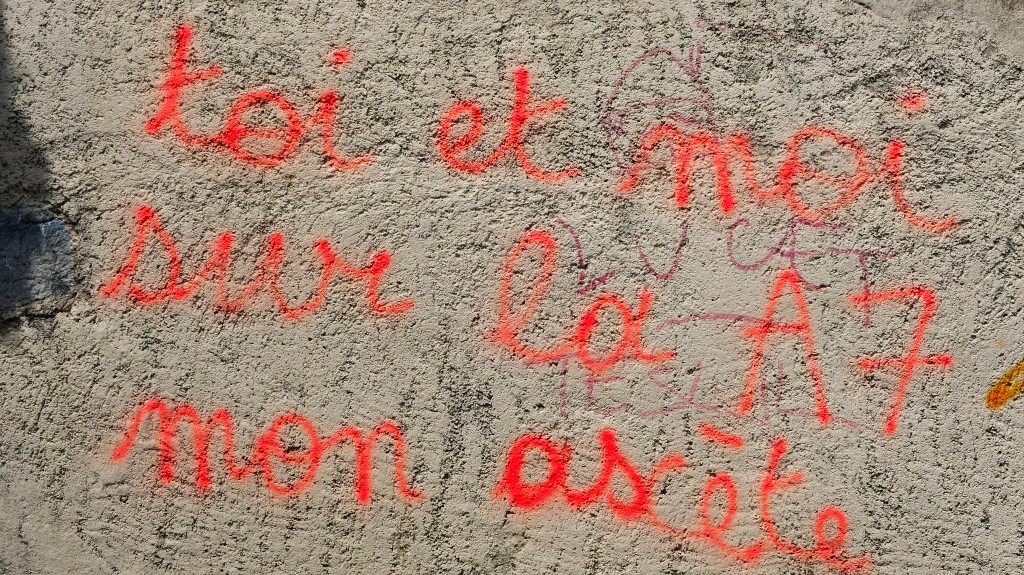 toi et moi
sur la A7
mon ascète